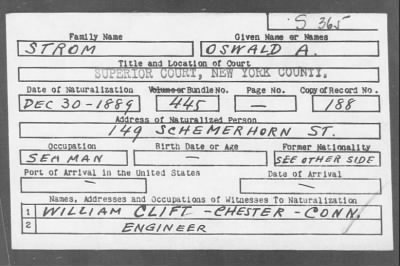 S 365
Family Name Given Name or Names
STROM OSWALD A.
Title and Location of Court
SUPERIOR COURT, NEW YORK COUNTY.
Date of Naturalization Volume or Bundle No. Page No. Copy of Record No.
DEC 30-1889 445 — 188
Address of Naturalized Person
149 SCHEMERHORN ST.
Occupation Birth Date or Age Former Nationality
SEAMAN — SEE OTHER SIDE
Port of Arrival in the United States Date of Arrival
— —
Names, Addresses and Occupations of Witnesses To Naturalization
1 WILLIAM CLIFT - CHESTER - CONN.
2 ENGINEER